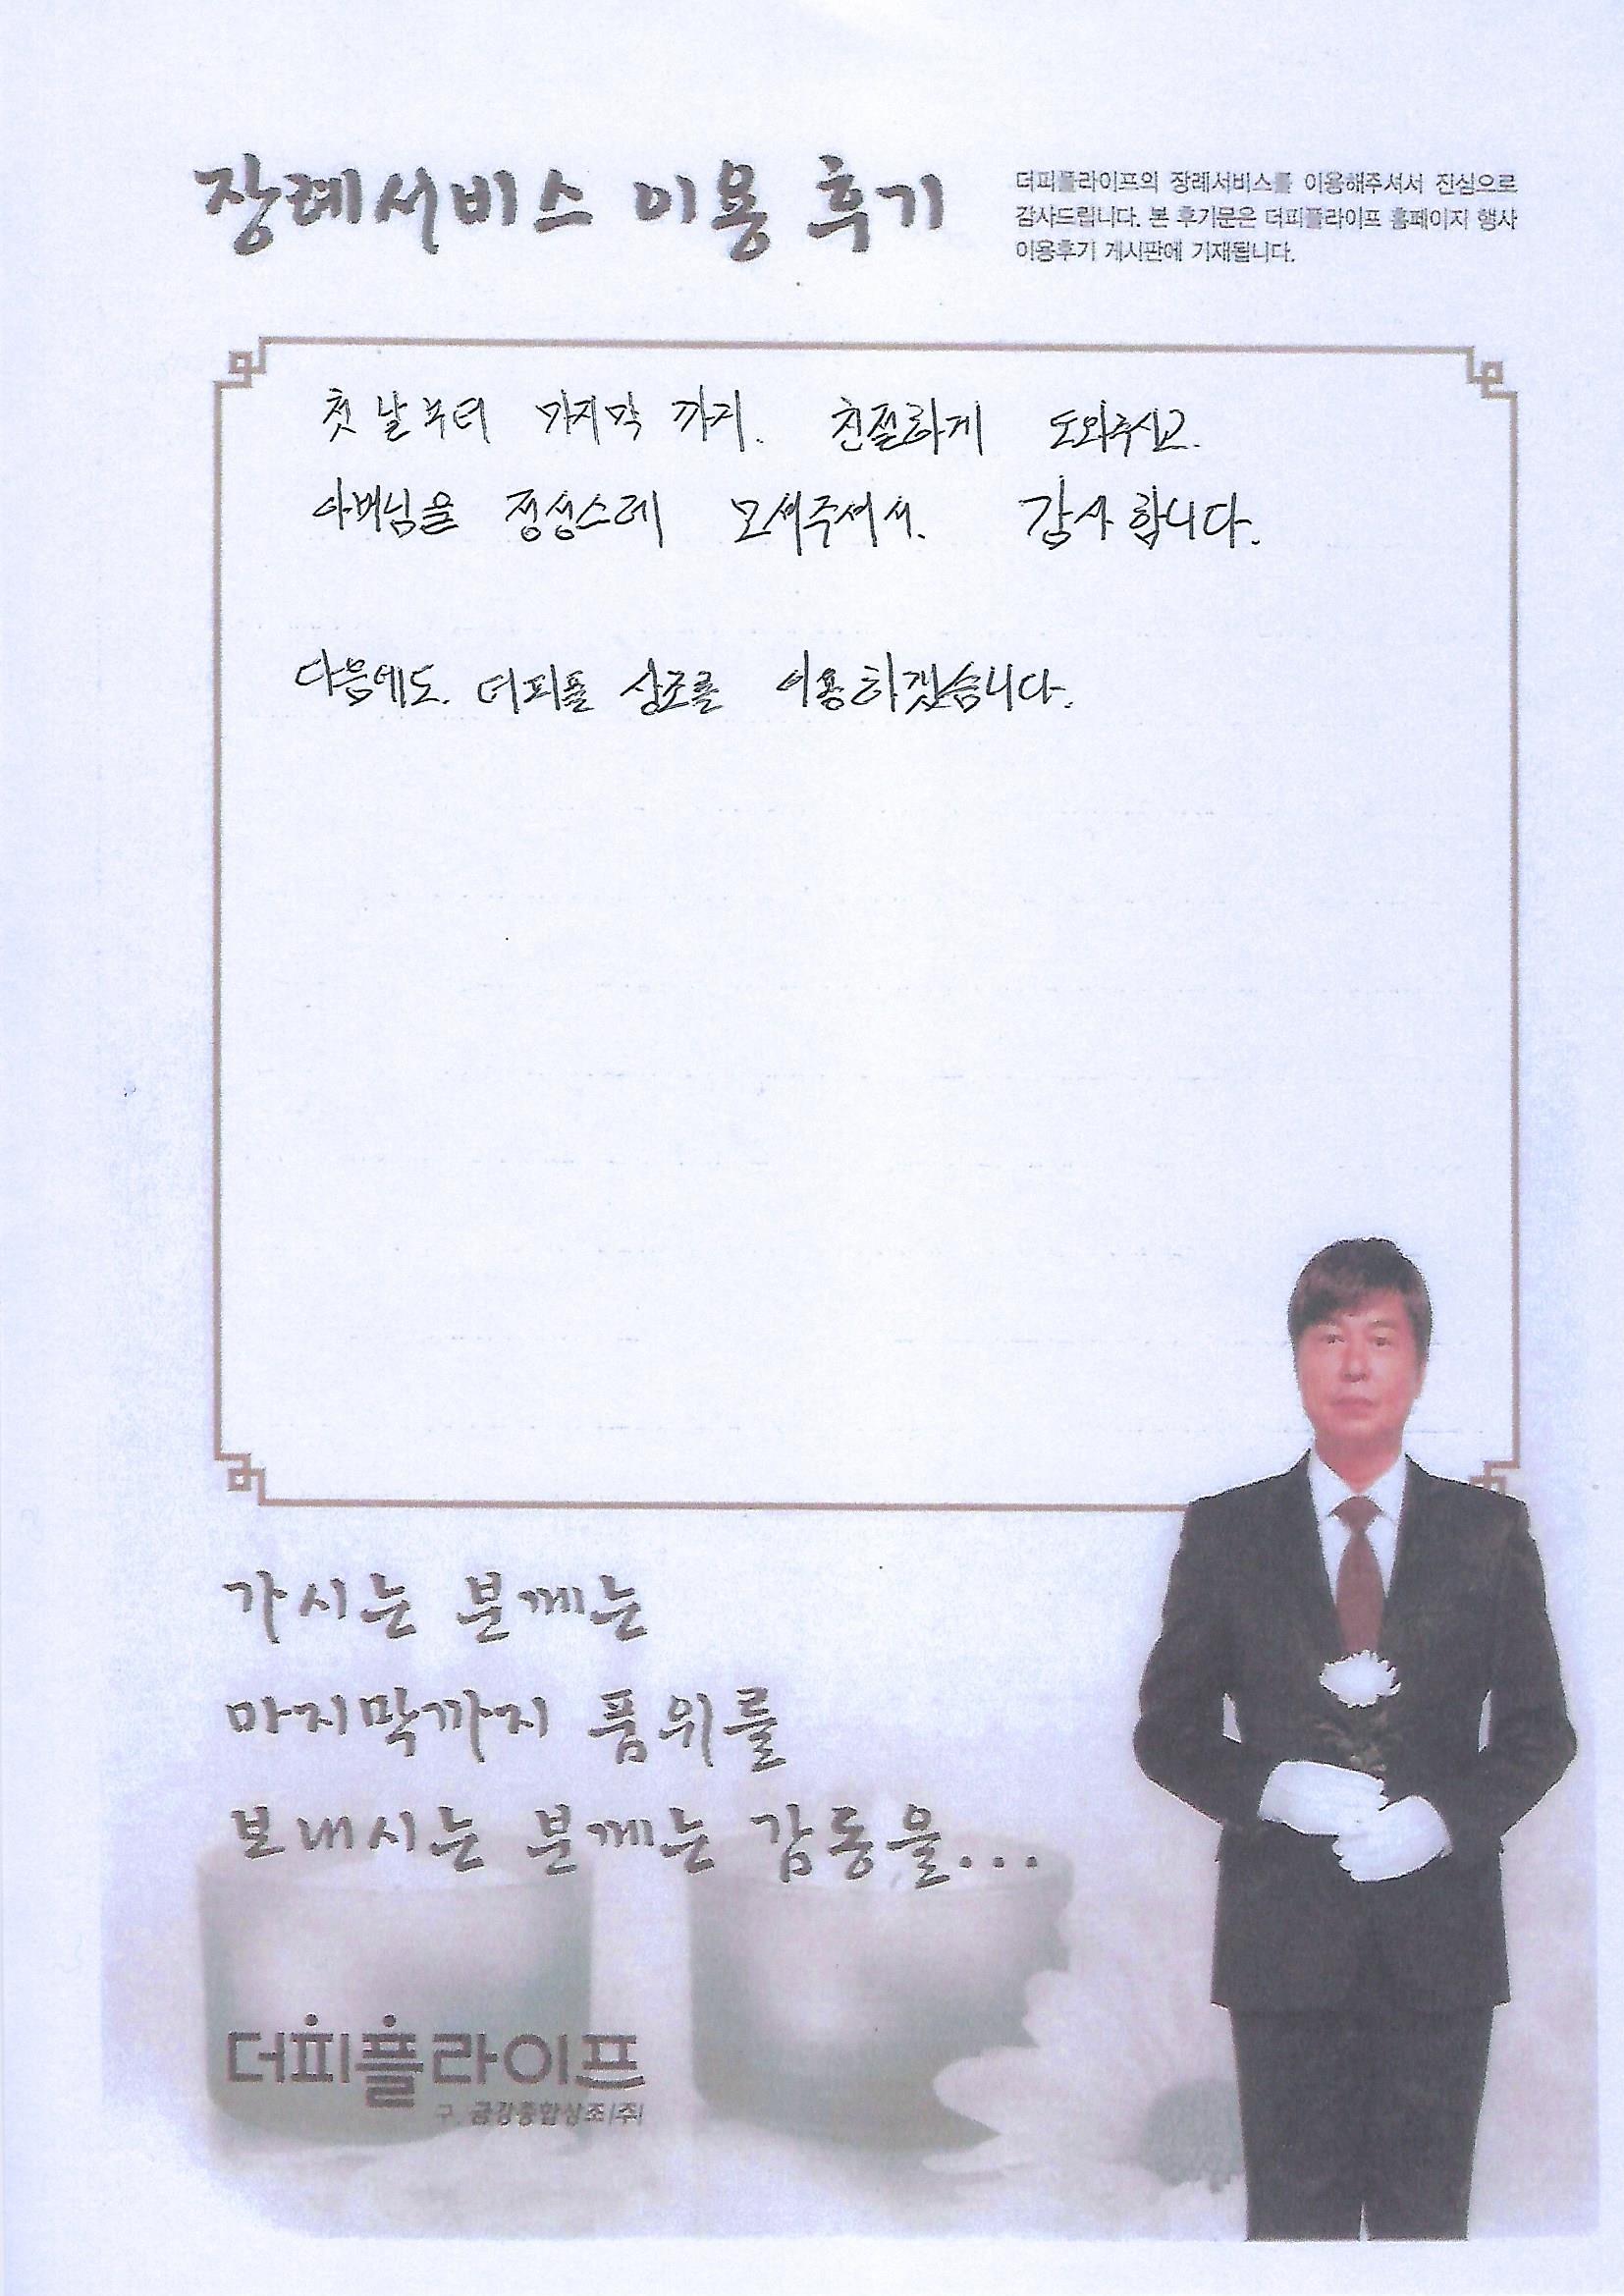 장례서비스 이용 후기
더피플라이프의 장례서비스를 이용해주셔서 진심으로
감사드립니다. 본 후기문은 더피플라이프 홈페이지 행사
이용후기 게시판에 기재됩니다.
첫날부터 마지막 까지. 친절하게 도와주시고.
아버님을 정성스레 모셔주셔서. 감사합니다.
다음에도. 더피플 상조를 이용하겠습니다.
가시는 분께는
마지막까지 품위를
보내시는 분께는 감동을...
더피플라이프
구. 금강종합상조(주)